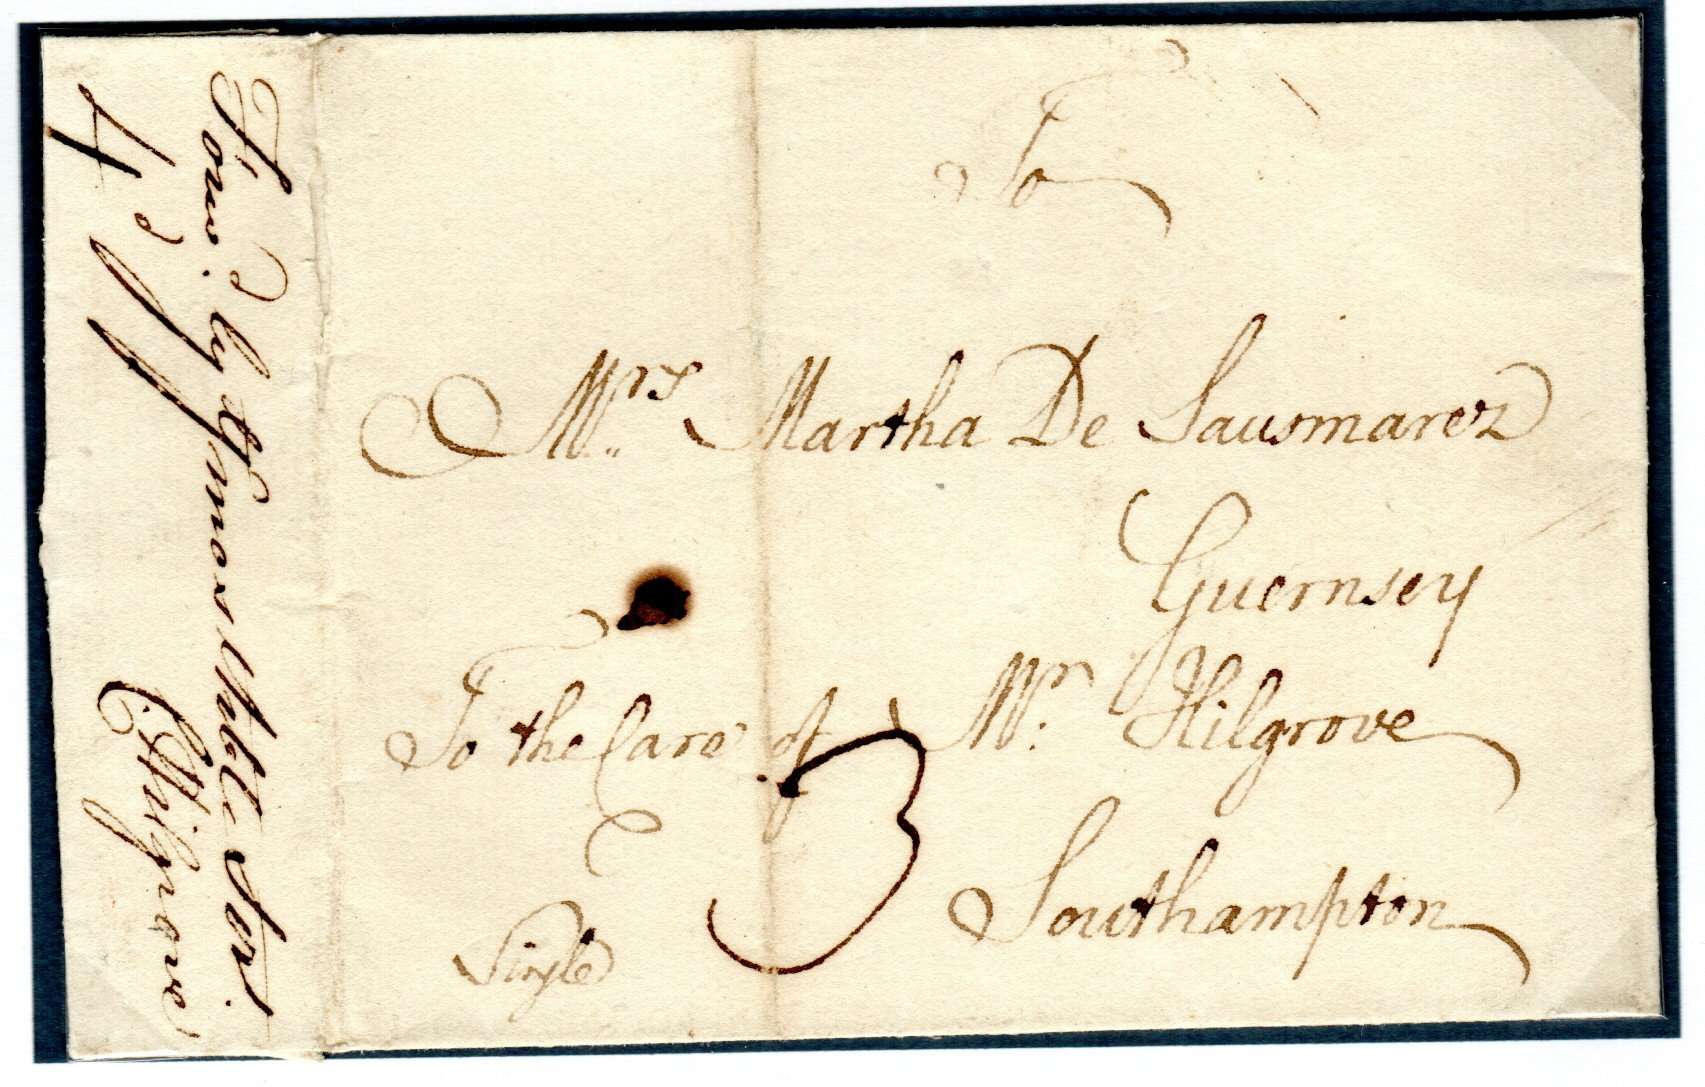 To
Mrs Martha De Sausmarez
Guernsey
To the Care of Mr Hilgrove
Southampton
Single
3
Forw.d by Yr most hble Serv.
C: Hilgrove
4d //